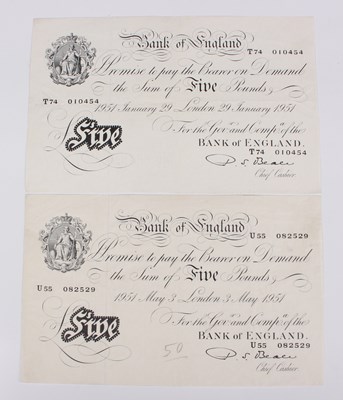 Bank of England
T74 010454
Promise to pay the Bearer on Demand
the Sum of Five Pounds
T74 010454
1951 January 29 London 29 January 1951
For the Gov.r and Comp.a of the
BANK OF ENGLAND.
T74 010454
£Five
P. S. Beale
Chief Cashier.
Bank of England
U55 082529
Promise to pay the Bearer on Demand
the Sum of Five Pounds
U55 082529
1951 May 3 London 3 May 1951
For the Gov.r and Comp.a of the
BANK OF ENGLAND.
U55 082529
£Five
50
P. S. Beale
Chief Cashier.